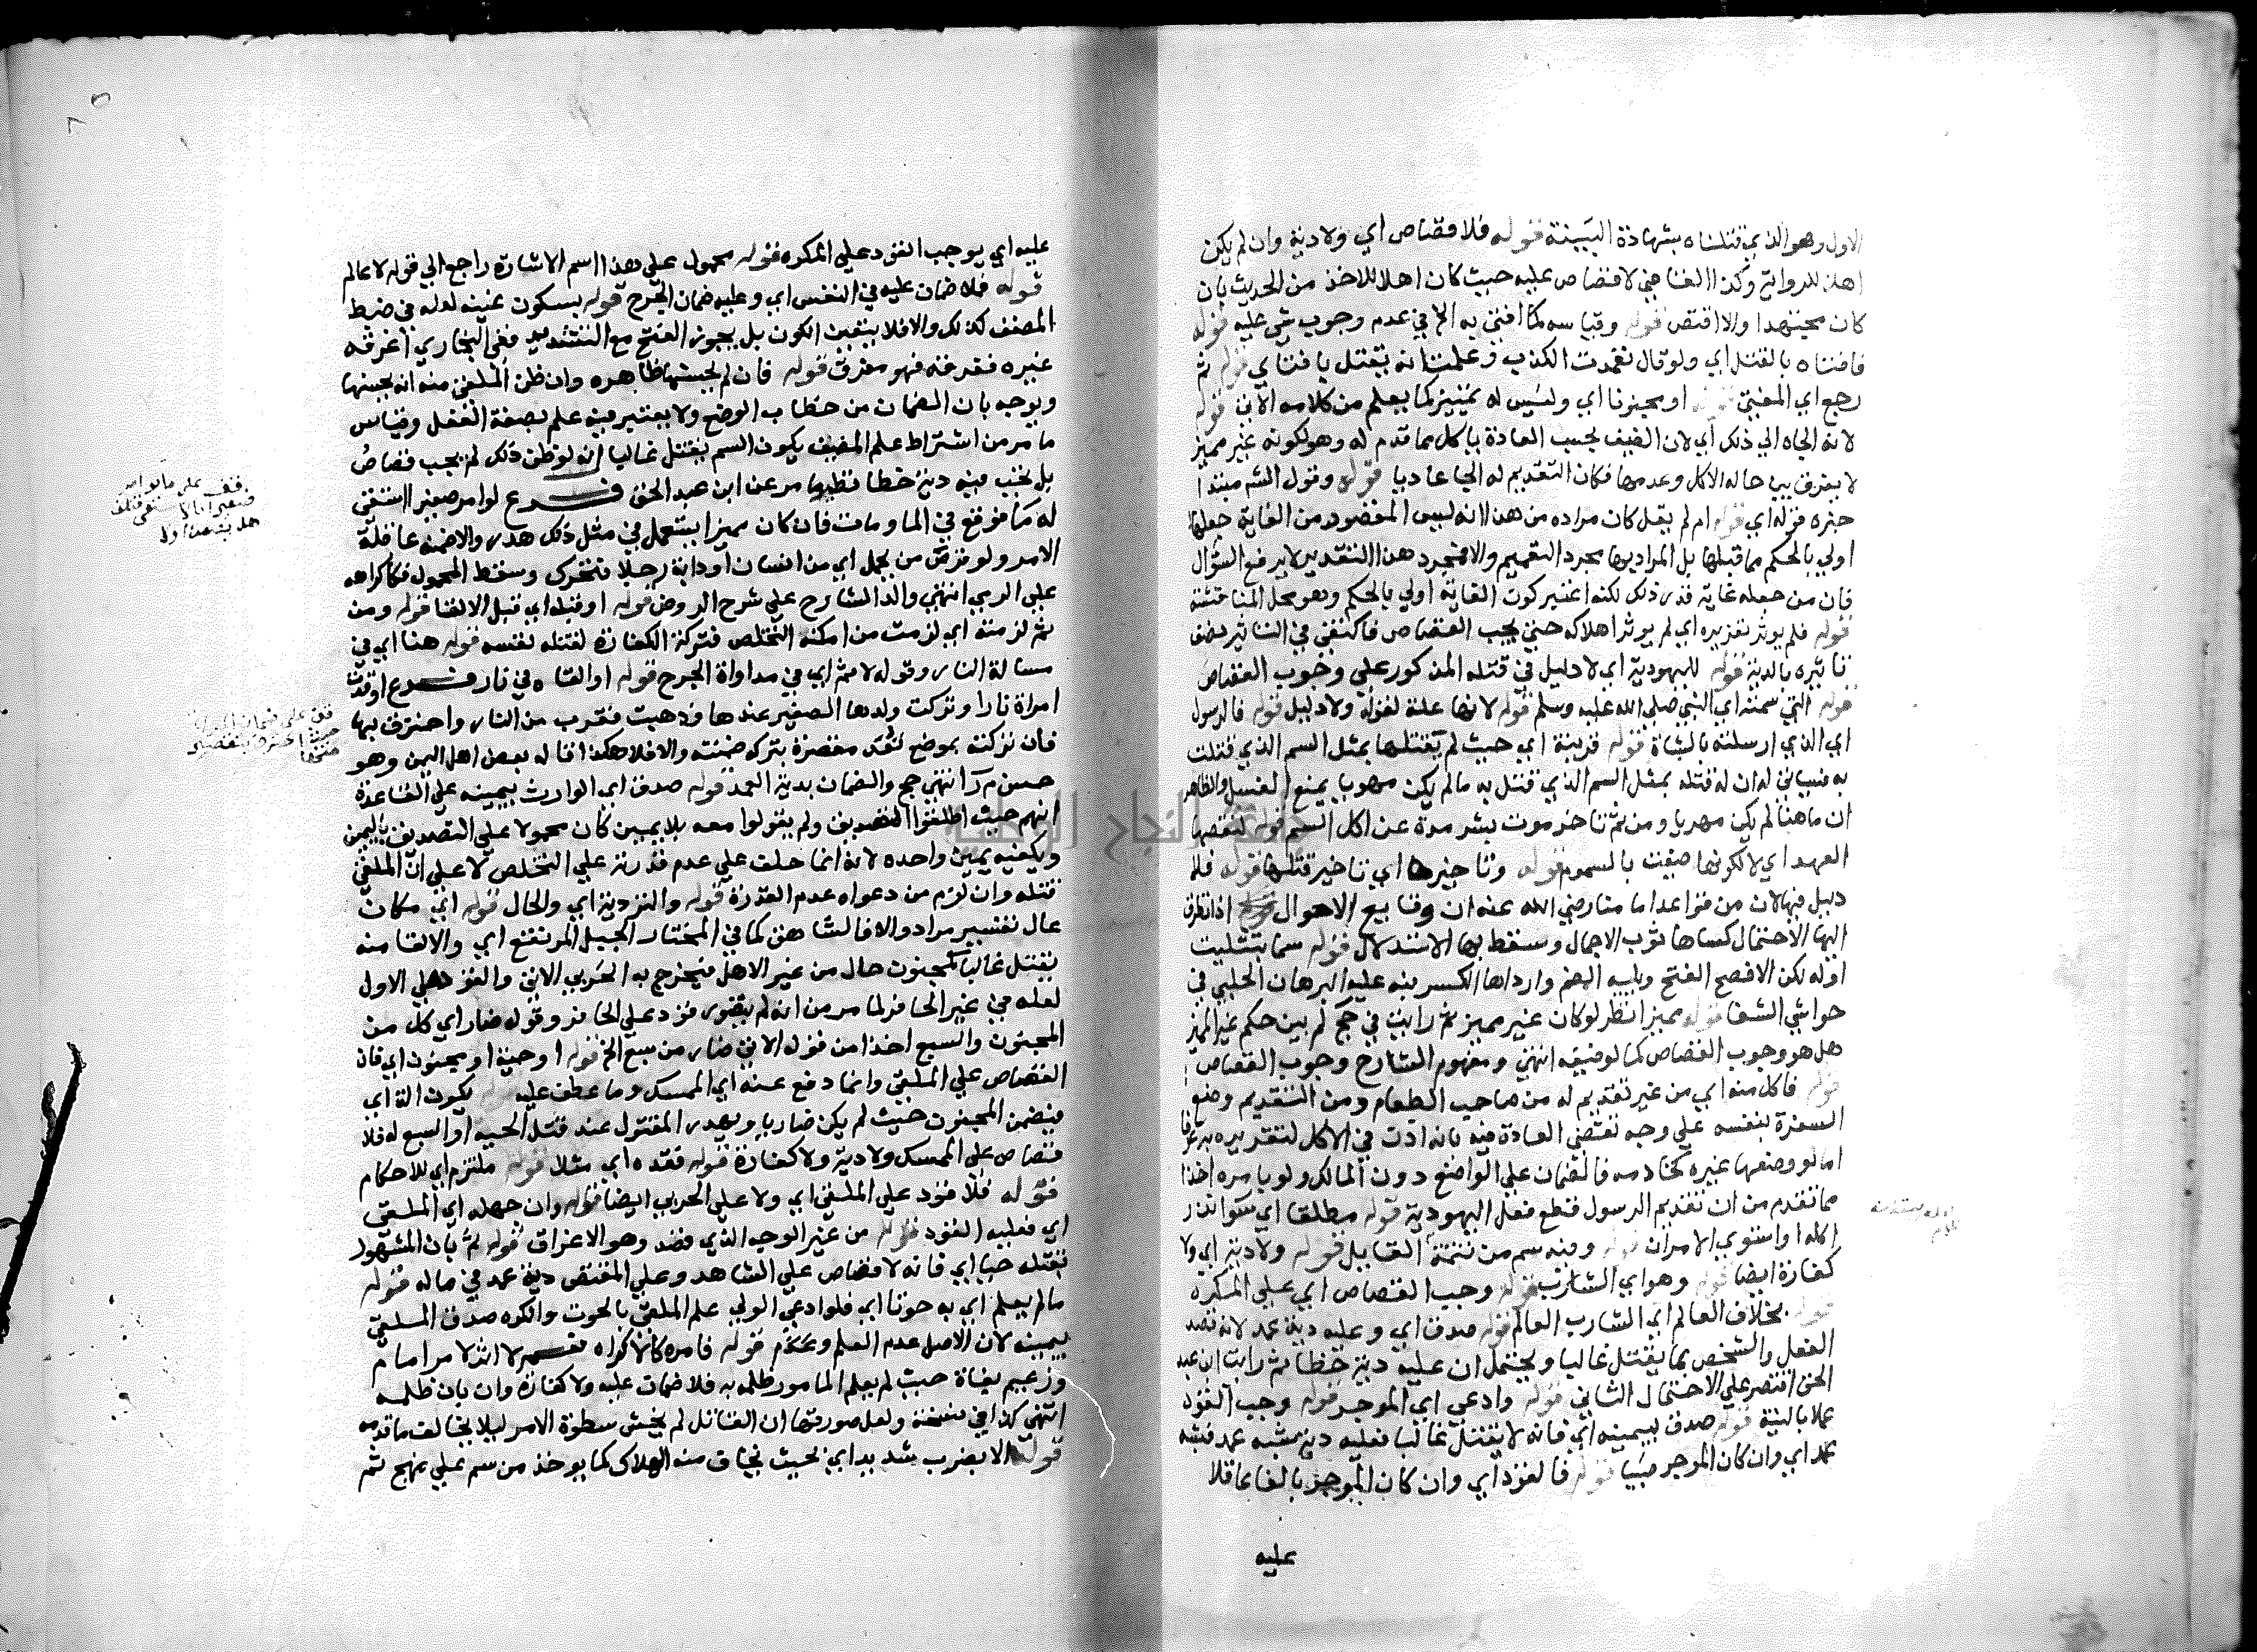 الاول وهو الذي قتلناه بشهادة البينة قوله فلا قصاص اي ولا دية وان لم يكن
اهلا للرواية وكذا القاضي لا قصاص عليه حيث كان اهلا للاخذ من الحديث بان
كان مجتهدا والا اقتص قوله وقياسه كما افتى به الخ في عدم وجوب شي عليه قوله
فافتاه بالقتل اي ولو قال تعمدت الكذب وعلمت انه يقتل بافتاي قوله ثم
رجع اي المفتي قوله او مجنونا اي وليس له تمييز كما يعلم من كلامه الاتي قوله
لانه الجاه الي ذلك اي لان الضيف بحسب العادة ياكل مما قدم له وهو لكونه غير مميز
لا يفرق بين حالة الاكل وعدمها فكان التقديم له الجا عاديا قوله وقول الشم مبتدا
خبره قوله اي قوله ام لم يقل كان مراده من هذا انه ليس المقصود من الغاية جعلها
اولي بالحكم مما قبلها بل المراد بها مجرد التعميم والا فمجرد هذا التقدير لا يرفع السؤال
فان من جعله غاية قدر ذلك لكنه اعتبر كون الغاية اولي بالحكم وهو محل المناقشة
قوله فلم يوثر تغريره اي لم يوثر اهلاكه حتى يجب القصاص فاكتفى في التاثير بضعف
تاثيره بالدية قوله لليهودية اي لا دليل في قتله المذكور علي وجوب القصاص
قوله التي سمته اي النبي صلي الله عليه وسلم قوله لانها علة لقوله ولا دليل قوله فالرسول
اي الذي ارسلته بالشاة قوله قرينة اي حيث لم يقتلها بمثل السم الذي قتلت
به فسياتي له ان له قتله بمثل السم الذي قتل به ما لم يكن مهريا يمنع الغسل والظاهر
ان ما هنا لم يكن مهريا ومن ثم تاخر موت بشر مدة عن اكل السم قوله لنقضها
العهد اي لا لكونها ضيفت بالسموم قوله وتاخيرها اي تاخير قتلها قوله فلا
دليل فيها لان من قواعد امامنا رضي الله عنه ان وقايع الاحوال اذا تطرق
اليها الاحتمال كساها ثوب الاجمال وسقط بها الاستدلال قوله سما بتثليث
اوله لكن الافصح الفتح ويليه الضم وارداها الكسر نبه عليه البرهان الحلبي في
حواشي الشفا قوله مميزا انظر لو كان غير مميز ثم رايت في حج لم يبين حكم غير المميز
هل هو وجوب القصاص كما لو ضيفه انتهى ومفهوم الشارح وجوب القصاص
قوله فاكل منه اي من غير تقديم له من صاحب الطعام ومن التقديم وضع
السفرة بنفسه علي وجه تقتضي العادة فيه بانه اذن في الاكل لتقديره به عرفا
اما لو وضعها غيره كخادمه فالضمان علي الواضع دون المالك ولو بامره اخذا
مما تقدم من ان تقديم الرسول قطع فعل اليهودية قوله مطلقا اي سوا ندر
اكله او استوي الامران قوله وفيه سم من تتمة القايل قوله ولا دية اي ولا
كفارة ايضا قوله وهو اي الشارب قوله وجب القصاص اي علي المكره
قوله بخلاف العالم اي الشارب العالم قوله صدق اي وعليه دية عمد لانه قصد
الفعل والشخص بما يقتل غالبا ويحتمل ان عليه دية خطا ثم رايت ابن عبد
الحق اقتصر علي الاحتمال الثاني قوله وادعى اي الموجر قوله وجب القود
عملا بالبينة قوله صدق بيمينه اي فانه لا يقتل غالبا فعليه دية شبه عمد فشبه
عمد اي وان كان الموجر صبيا قوله فالقود اي وان كان الموجر بالغا عاقلا
عليه
عليه اي يوجب القود علي المكره قوله محمول علي هذا اسم الاشارة راجع الي قوله لا عالم
قوله فلا ضمان عليه في النفس اي وعليه ضمان الجرح قوله بسكون عينه لعله في ضبط
المصنف كذلك والا فلا يتعين الكون بل يجوز الفتح مع التشديد ففي البخاري اغرقه
غيره فغرقه فهو مغرق قوله فان لم يحسنها ظاهره وان ظن الملقي منه انه يحسنها
ويوجه بان الضمان من خطاب الوضع ولا يعتبر فيه علم بصفة الفعل وقياس
ما مر من اشتراط علم المضيف بكون السم يقتل غالبا انه لو ظن ذلك لم يجب قصاص
بل تجب فيه دية خطا نظير ما مر عن ابن عبد الحق فرع لو امر صغيرا استقى
له ماء فوقع في الما ومات فان كان مميزا يستعمل في مثل ذلك هدر والا ضمنه عاقلة
الامر ولو قرص من يحمل اي من انسان او دابة رجلا فتحرك وسقط المحمول فكاكراهه
علي الرمي انتهى والد الشارح علي شرح الروض قوله او قبله اي قبل الالقا قوله ومن
ثم لزمته اي لزمت من امكنه التخلص فتركه الكفارة لقتله نفسه قوله هنا اي في
مسالة النار وقوله لا ثم اي في مداواة الجرح قوله او القاه في نار فرع اوقدت
امراة نارا وتركت ولدها الصغير عندها وذهبت فقرب من النار واحترق بها
فان تركته بموضع تعد مقصرة بتركه ضمنته والا فلا هكذا قاله بعض اهل اليمن وهو
حسن م ر انتهى حج والضمان بدية العمد قوله صدق اي الوارث بيمينه علي القاعدة
انهم حيث اطلقوا التصديق ولم يقولوا معه بلا يمين كان محمولا علي التصديق باليمين
ويكفيه يمين واحده لانه انما حلف علي عدم قدرته علي التخلص لا علي ان الملقي
قتله وان لزم من دعواه عدم القدرة قوله والتردية اي والحال قوله اي مكان
عال تفسير مراد والا فالشاهق كما في المختار الجبل المرتفع اي والالقا منه
يقتل غالبا كمجنون حال من غير الاهل فيخرج به الحربي الاتي والقود علي الاول
لعله في غير الحافر لما مر من انه لم يتصور قود علي الحافر وقوله ضار اي كل من
المجنون والسبع اخذا من قوله الاتي ضار من سبع الخ قوله او حية او مجنون اي فان
القصاص علي الملقي وانما دفع عنه اي الممسك وما عطف عليه قوله يكون الة اي
فيضمن المجنون حيث لم يكن ضاريا ويهدر المقتول عند قتل الحية او السبع له فلا
قصاص علي الممسك ولا دية ولا كفارة قوله فقده اي مثلا قوله ملتزم اي للاحكام
قوله فلا قود علي الملقي اي ولا علي الحربي ايضا قوله وان جهله اي الملقي
اي فعليه القود قوله من غير الوجه الذي قصد وهو الاغراق قوله ثم بان المشهود
بقتله حيا اي فانه لا قصاص علي الشاهد وعلي المقتص دية عمد في ماله قوله
ما لم يعلم اي به حوتا اي فلو ادعى الولي علم الملقي بالحوت وانكره صدق الملقي
بيمينه لان الاصل عدم العلم قوله فامره كالاكراه لا اثر لامر امام
وزعيم بغاة حيث لم يعلم المامور ظلمه به فلا ضمان عليه ولا كفارة وان بان ظلمه
انتهى كذا في نسخة ولعل صورتها ان القاتل لم يخش سطوة الامر ليلا يخالف ما قدمه
قوله الا بضرب شديد اي بحيث يخاف منه الهلاك كما يوخذ من سم علي منهج ثم
قف علي ما لو امر
صغيرا